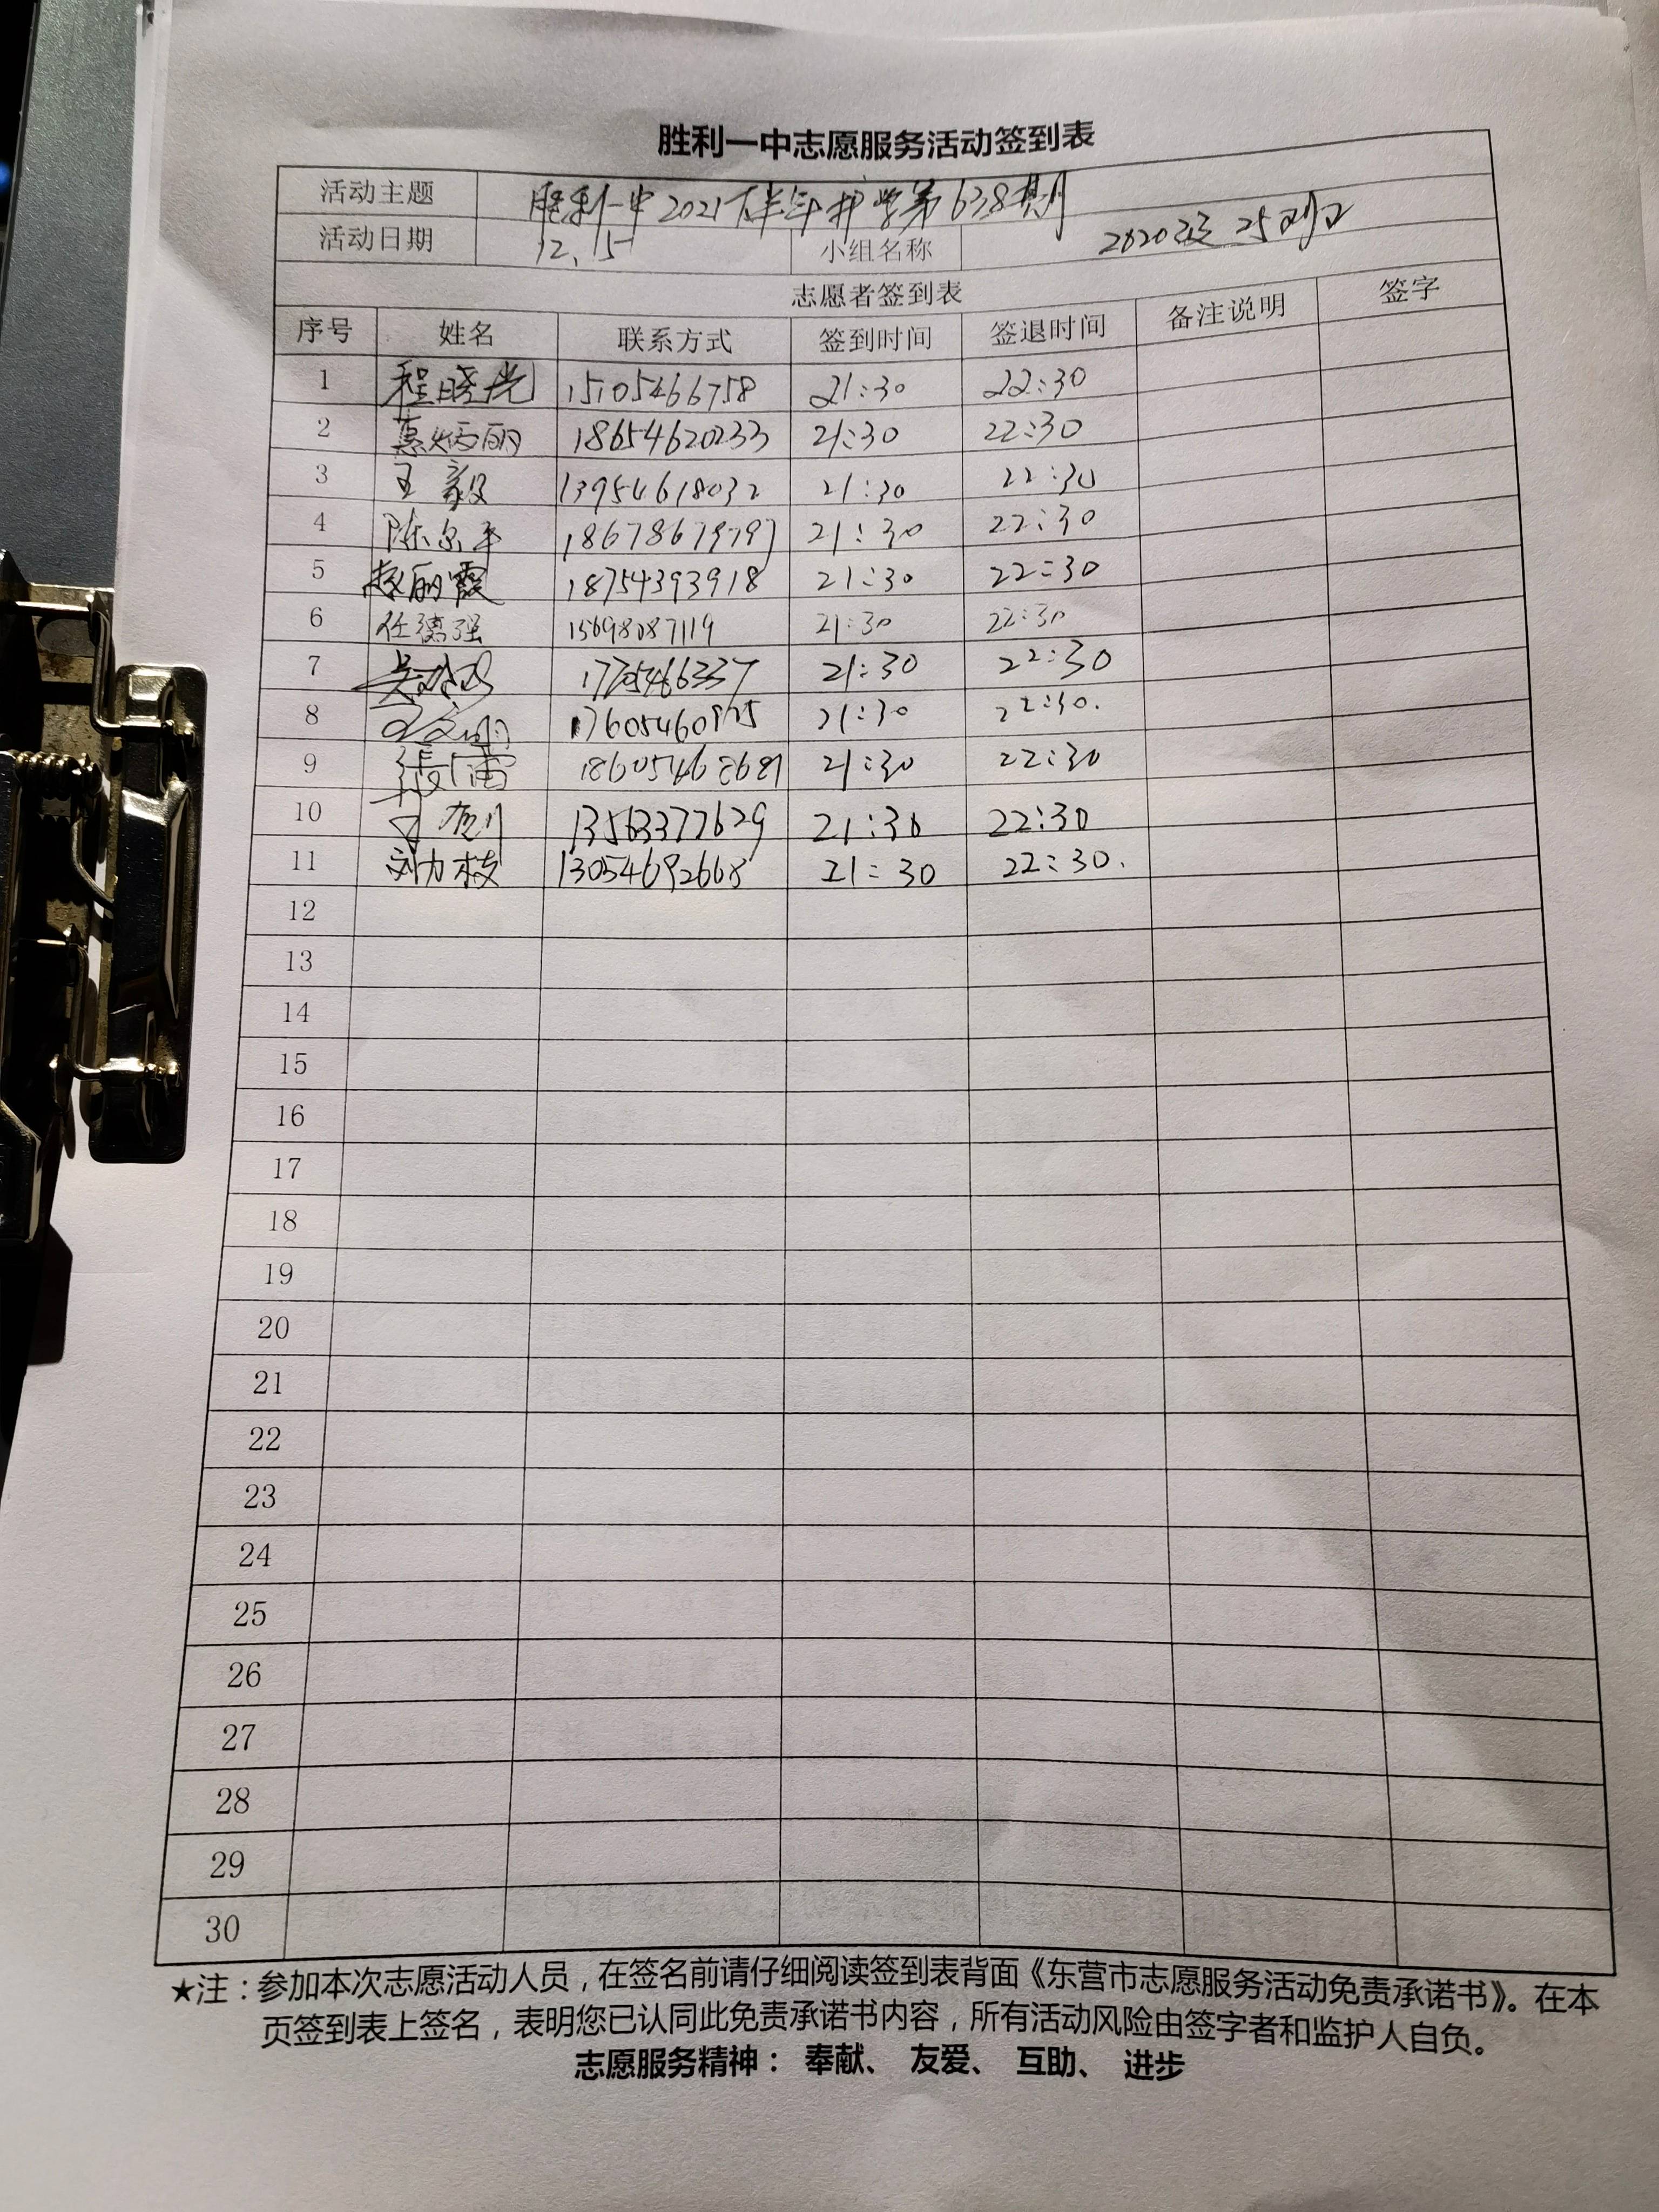 胜利一中志愿服务活动签到表
活动主题 胜利一中2021下半年护学第638期
活动日期 12.15 小组名称 2020级25
志愿者签到表
序号 姓名 联系方式 签到时间 签退时间 备注说明 签字
1 程晓光 15105466758 21:30 22:30
2 炳丽 18654620233 21:30 22:30
3 王毅 13954618032 21:30 22:30
4 21:30 22:30
5 赵丽霞 18754393918 21:30 22:30
6 任德强 15698087119 21:30 22:30
7 21:30 22:30
8 21:30 22:30.
9 21:30 22:30
10 13563377629 21:30 22:30
11 刘力枝 13054692668 21:30 22:30.
12
13
14
15
16
17
18
19
20
21
22
23
24
25
26
27
28
29
30
★注:参加本次志愿活动人员,在签名前请仔细阅读签到表背面《东营市志愿服务活动免责承诺书》。在本
页签到表上签名,表明您已认同此免责承诺书内容,所有活动风险由签字者和监护人自负。
志愿服务精神: 奉献、 友爱、 互助、 进步